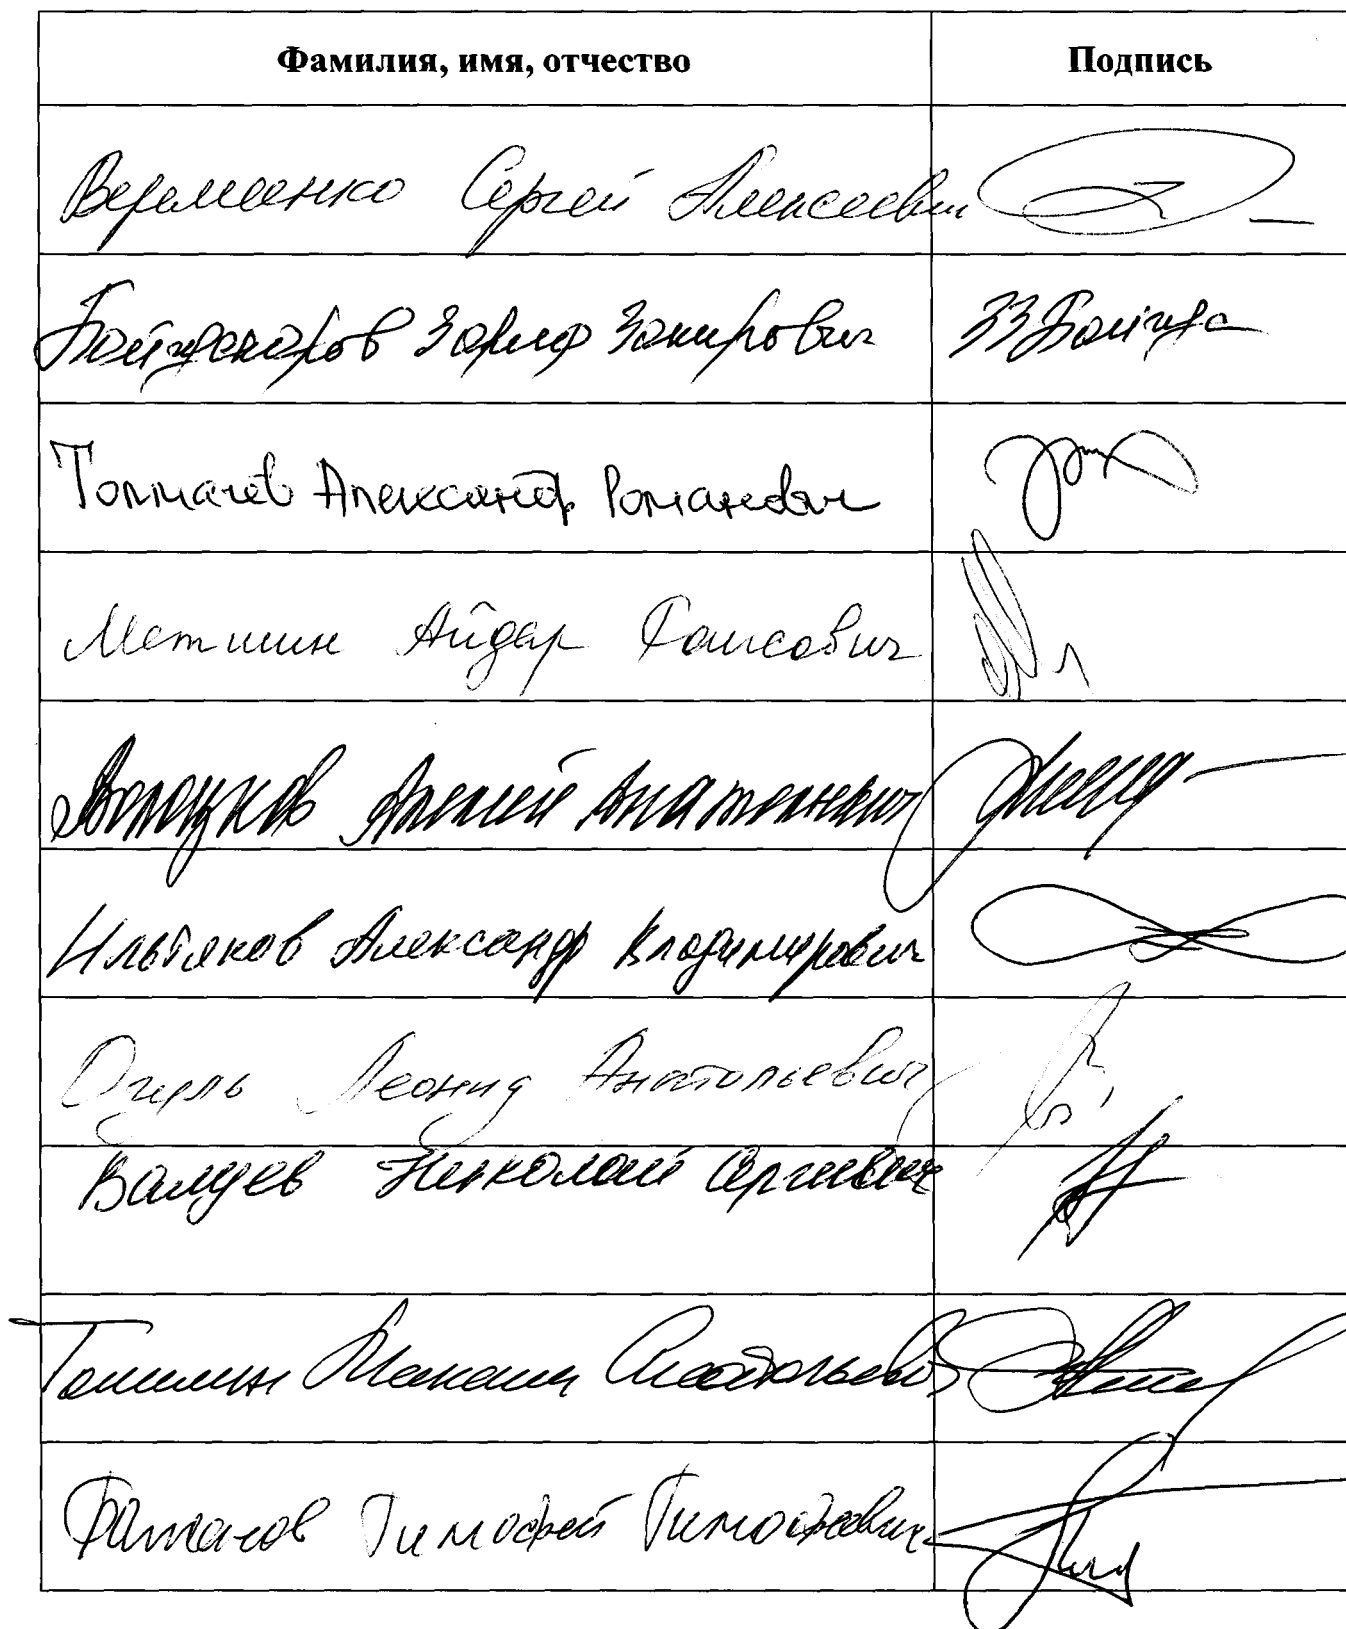 Фамилия, имя, отчество Подпись
Веремеенко Сергей Алексеевич
Байгускаров Зариф Закирович ЗЗБайгус
Толмачев Александр Романович
Метшин Айдар Раисович
Волоцков Алексей Анатольевич
Ильтяков Александр Владимирович
Огуль Леонид Анатольевич
Валуев Николай Сергеевич
Топилин Максим Анатольевич
Баженов Тимофей Тимофеевич